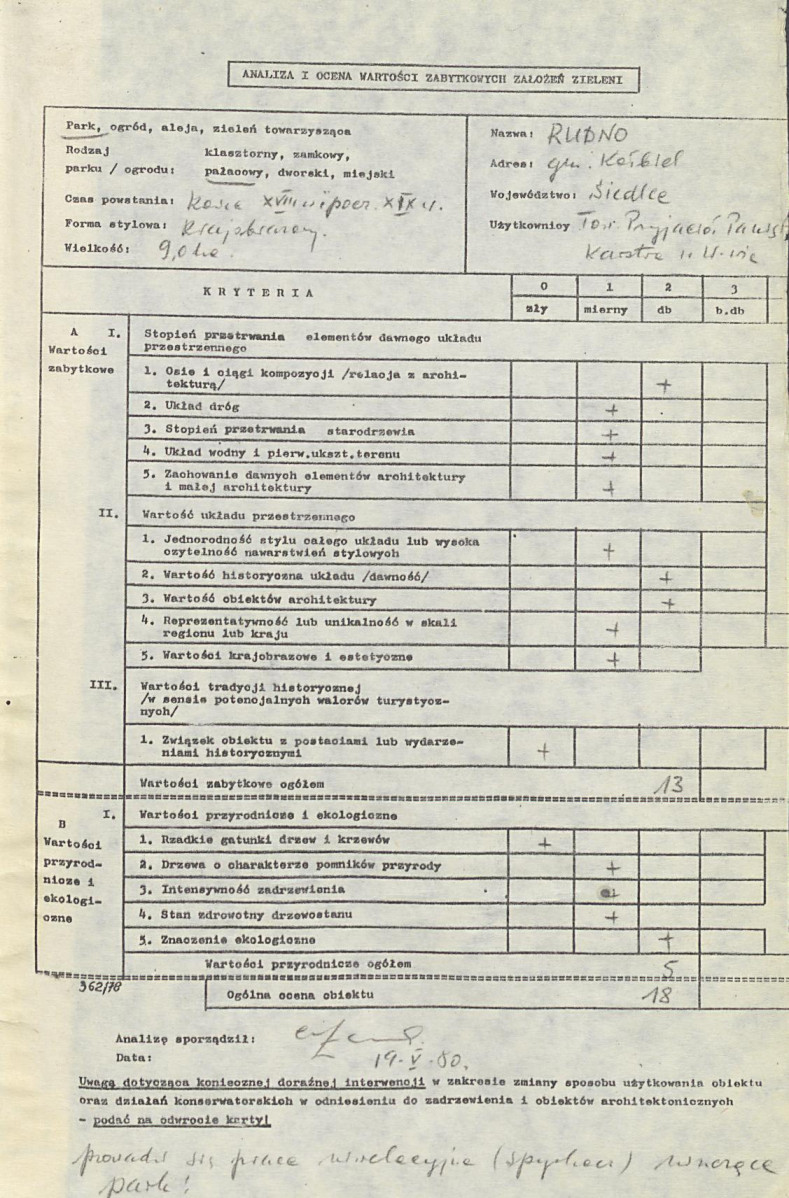 ANALIZA I OCENA WARTOŚCI ZABYTKOWYCH ZAŁOŻEŃ ZIELENI
Park, ogród, aleja, zieleń towarzysząca
Rodzaj klasztorny, zamkowy,
parku / ogrodu: pałacowy, dworski, miejski
Czas powstania: Koniec XVIII w i pocz. XIX w.
Forma stylowa: Krajobrazowy.
Wielkość: 9,0 ha.
Nazwa: RUDNO
Adres: gm. Kołbiel
Województwo: Siedlce
Użytkownicy Tow. Przyjaciół
w W-wie
KRYTERIA
0 1 2 3
zły mierny db b.db
A I. Stopień przetrwania elementów dawnego układu
Wartości przestrzennego
zabytkowe 1. Osie i ciągi kompozycji /relacja z archi-
tekturą/ +
2. Układ dróg +
3. Stopień przetrwania starodrzewia +
4. Układ wodny i pierw.ukszt.terenu +
5. Zachowanie dawnych elementów architektury
i małej architektury +
II. Wartość układu przestrzennego
1. Jednorodność stylu całego układu lub wysoka
czytelność nawarstwień stylowych +
2. Wartość historyczna układu /dawność/ +
3. Wartość obiektów architektury +
4. Reprezentatywność lub unikalność w skali
regionu lub kraju +
5. Wartości krajobrazowe i estetyczne +
III. Wartości tradycji historycznej
/w sensie potencjalnych walorów turystycz-
nych/
1. Związek obiektu z postaciami lub wydarze-
niami historycznymi +
Wartości zabytkowe ogółem 13
B I. Wartości przyrodnicze i ekologiczne
Wartości 1. Rzadkie gatunki drzew i krzewów +
przyrod- 2. Drzewa o charakterze pomników przyrody +
nicze i 3. Intensywność zadrzewienia +
ekologi- 4. Stan zdrowotny drzewostanu +
czne 5. Znaczenie ekologiczne +
Wartości przyrodnicze ogółem 5
362/78 Ogólna ocena obiektu 18
Analizę sporządził:
Data: 19.V.80.
Uwagę dotycząca koniecznej doraźnej interwencji w zakresie zmiany sposobu użytkowania obiektu
oraz działań konserwatorskich w odniesieniu do zadrzewienia i obiektów architektonicznych
- podać na odwrocie karty!
prowadzi się prace niwelacyjne (spychacz) niszczące
park!